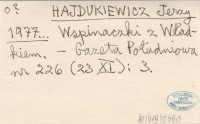 03 HAJDUKIEWICZ Jerzy
1977... Wspinaczki z Wład-
kiem. - Gazeta Południowa
nr 226 (23 XI): 3.